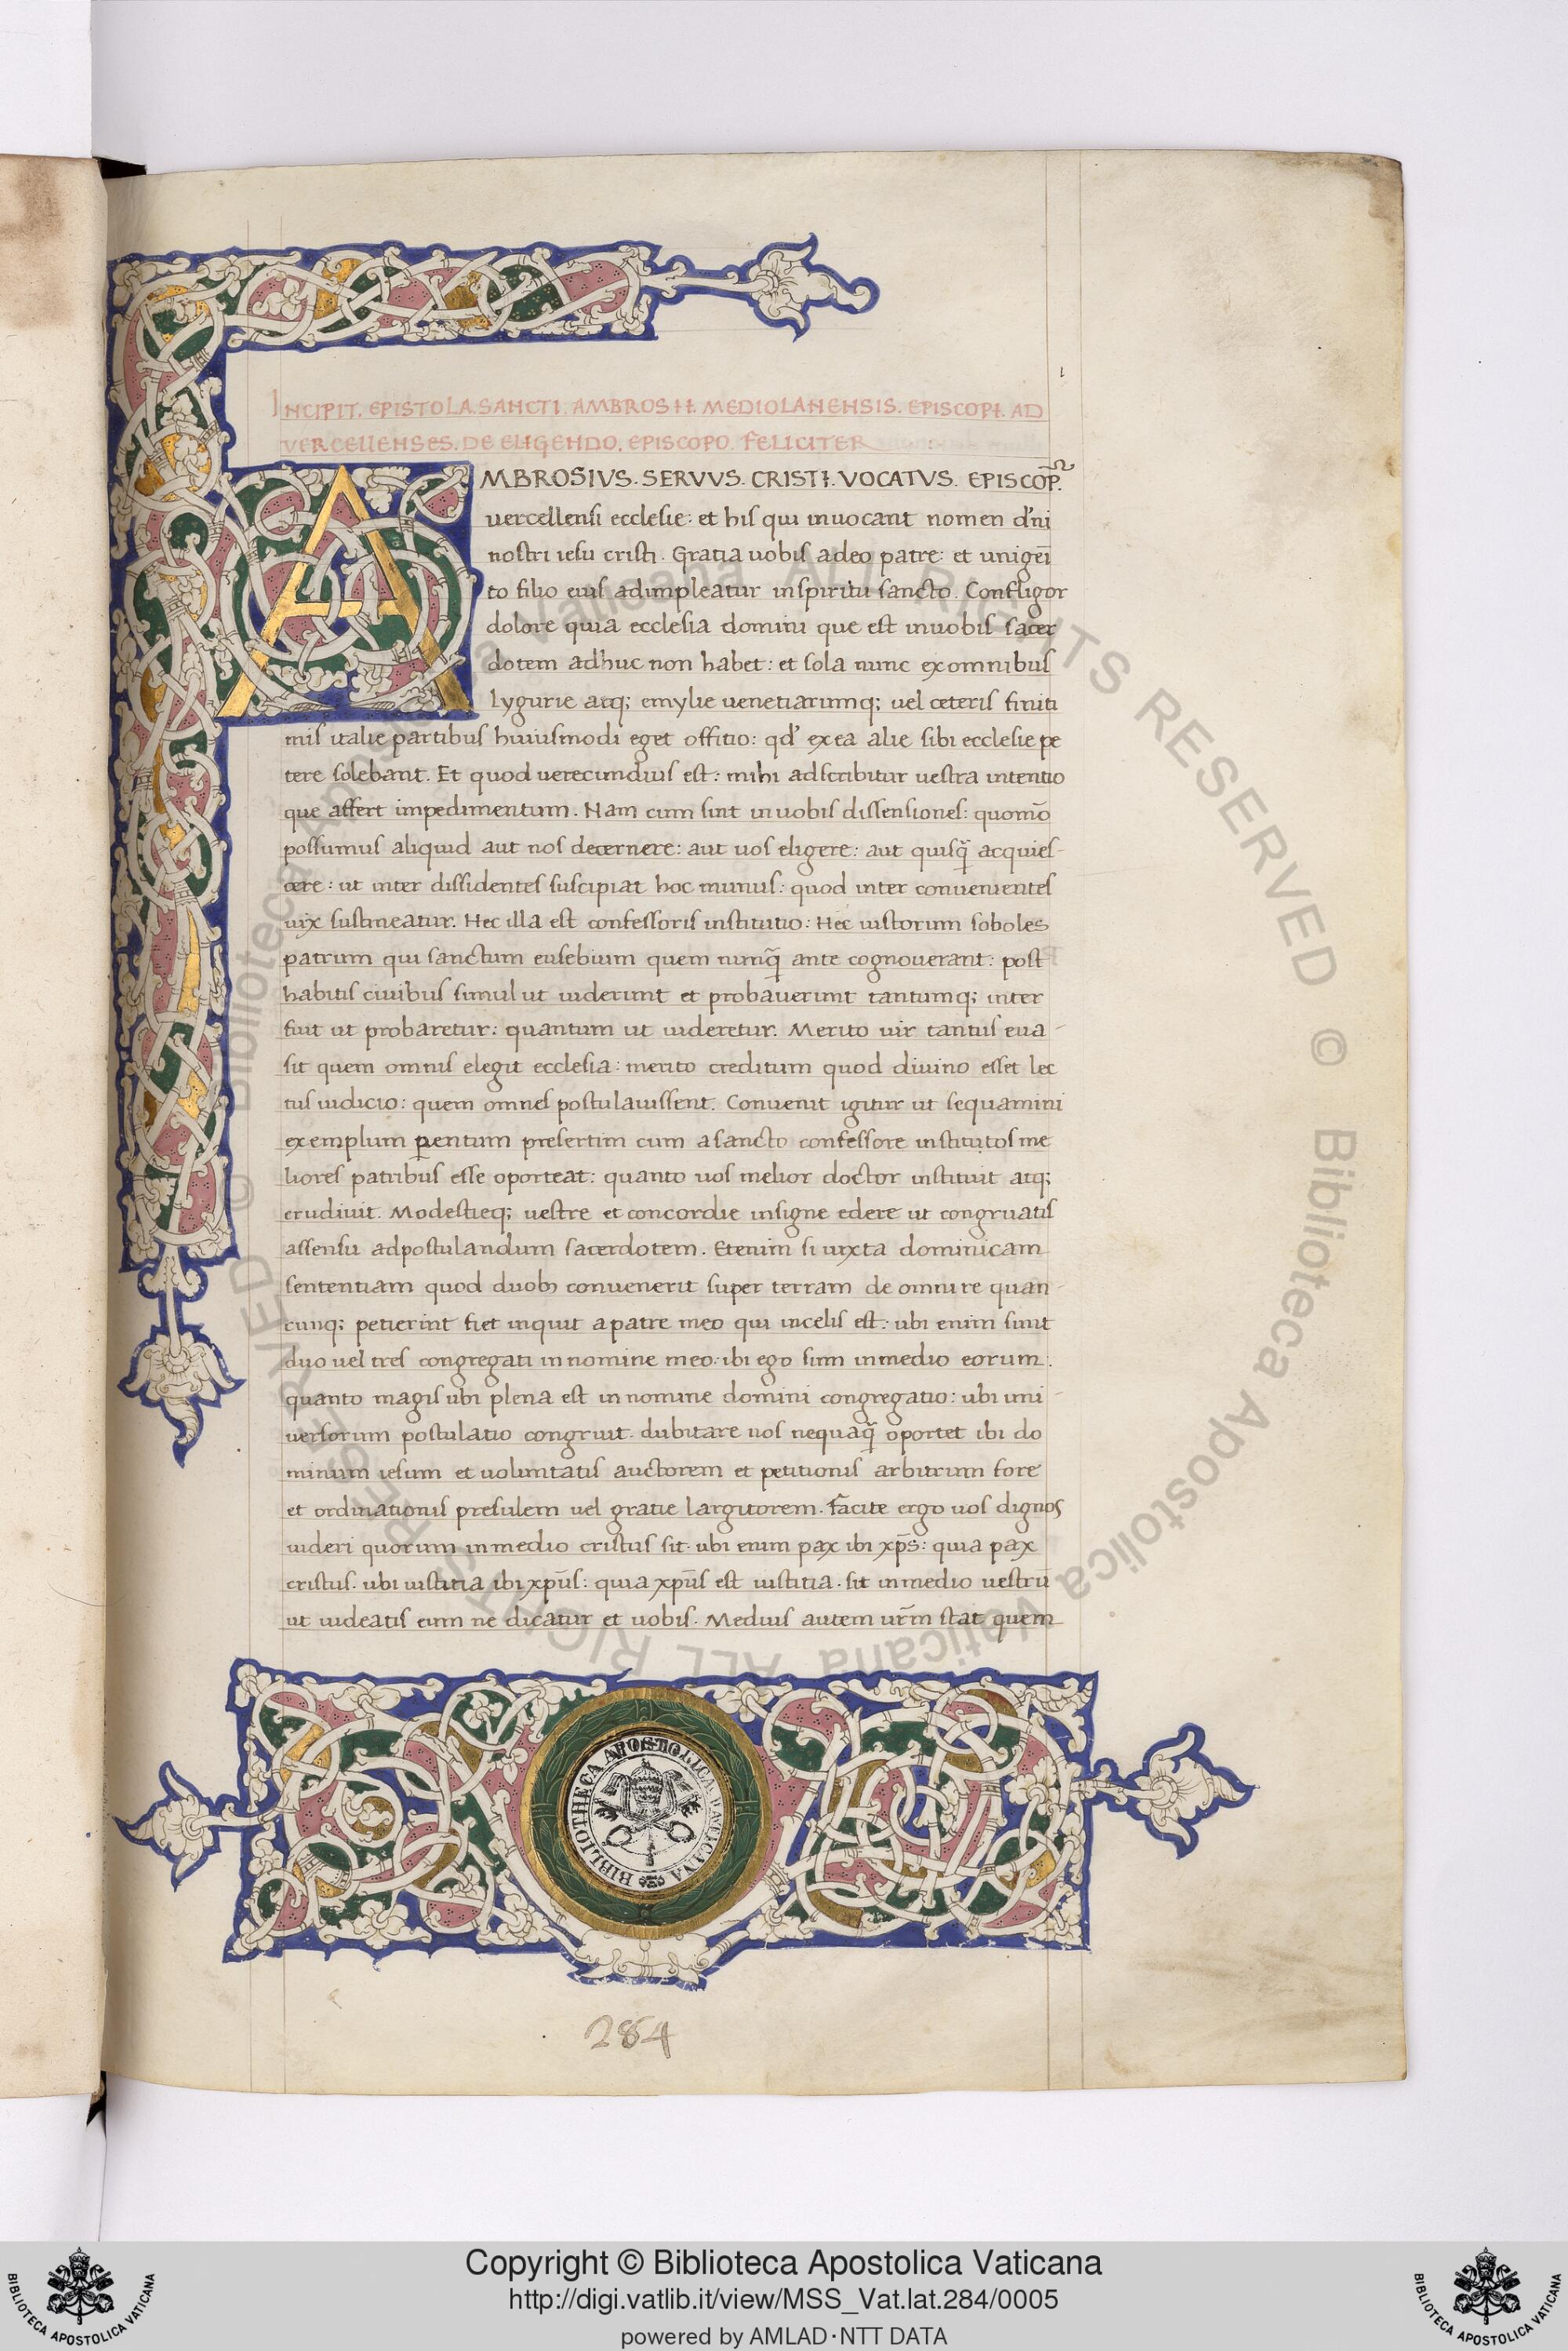 1
INCIPIT. EPISTOLA. SANCTI. AMBROSII. MEDIOLANENSIS. EPISCOPI. AD
VERCELLENSES. DE ELIGENDO. EPISCOPO. FELICITER
AMBROSIVS. SERVVS. CRISTI. VOCATVS. EPISCOP̄.
uercellensi ecclesie: et his qui inuocant nomen d'ni
nostri iesu cristi. Gratia uobis adeo patre: et unigeī
to filio eius adimpleatur inspiritu sancto. Confligor
dolore quia ecclesia domini que est inuobis sacer
dotem adhuc non habet: et sola nunc exomnibus
lygurie atq; emylie uenetiarumq; uel ceteris finiti
mis italie partibus huiusmodi eget offitio: qd' exea alie sibi ecclesie pe
tere solebant. Et quod uerecundius est: mihi adscribitur uestra intentio
que affert impedimentum. Nam cum sint inuobis dissensiones: quomō
possumus aliquid aut nos decernere: aut uos eligere: aut quisq̄ acquies-
cere: ut inter dissidentes suscipiat hoc munus: quod inter conuenientes
uix sustineatur. Hec illa est confessoris institutio: Hec iustorum soboles
patrum qui sanctum eusebium quem nunq̄ ante cognouerant: post
habitis ciuibus simul ut uiderunt et probauerunt tantumq; inter
fuit ut probaretur: quantum ut uideretur. Merito uir tantus eua-
sit quem omnis elegit ecclesia: merito creditum quod diuino esset lec
tus iudicio: quem omnes postulauissent. Conuenit igitur ut sequamini
exemplum ꝑentum presertim cum asancto confessore institutos me
liores patribus esse oporteat: quanto uos melior doctor instituit atq;
erudiuit. Modestieq; uestre et concordie insigne edere ut congruatis
assensu adpostulandum sacerdotem. Etenim si iuxta dominicam
sententiam quod duob; conuenerit super terram de omni re quan-
cunq; petierint fiet inquit apatre meo qui incelis est: ubi enim sunt
duo uel tres congregati innomine meo: ibi ego sum inmedio eorum:
quanto magis ubi plena est innomine domini congregatio: ubi uni-
uersorum postulatio congruit. dubitare uos nequaq̄ oportet ibi do
minum iesum et uoluntatis auctorem et petitionis arbitrum fore
et ordinationis presulem uel gratie largitorem. Facite ergo uos dignos
uideri quorum inmedio cristus sit. ubi enim pax ibi xp̄s: quia pax
cristus. ubi iustitia ibi xpūs: quia xpūs est iustitia. sit inmedio uestrū
ut uideatis eum ne dicatur et uobis. Medius autem ur̄m stat quem
BIBLIOTHECA APOSTOLICA VATICANA
284
© Biblioteca Apostolica Vaticana ALL RIGHTS RESERVED © Biblioteca Apostolica Vaticana ALL RIGHTS RESERVED
Copyright © Biblioteca Apostolica Vaticana
http://digi.vatlib.it/view/MSS_Vat.lat.284/0005
powered by AMLAD·NTT DATA
BIBLIOTECA APOSTOLICA VATICANA
BIBLIOTECA APOSTOLICA VATICANA